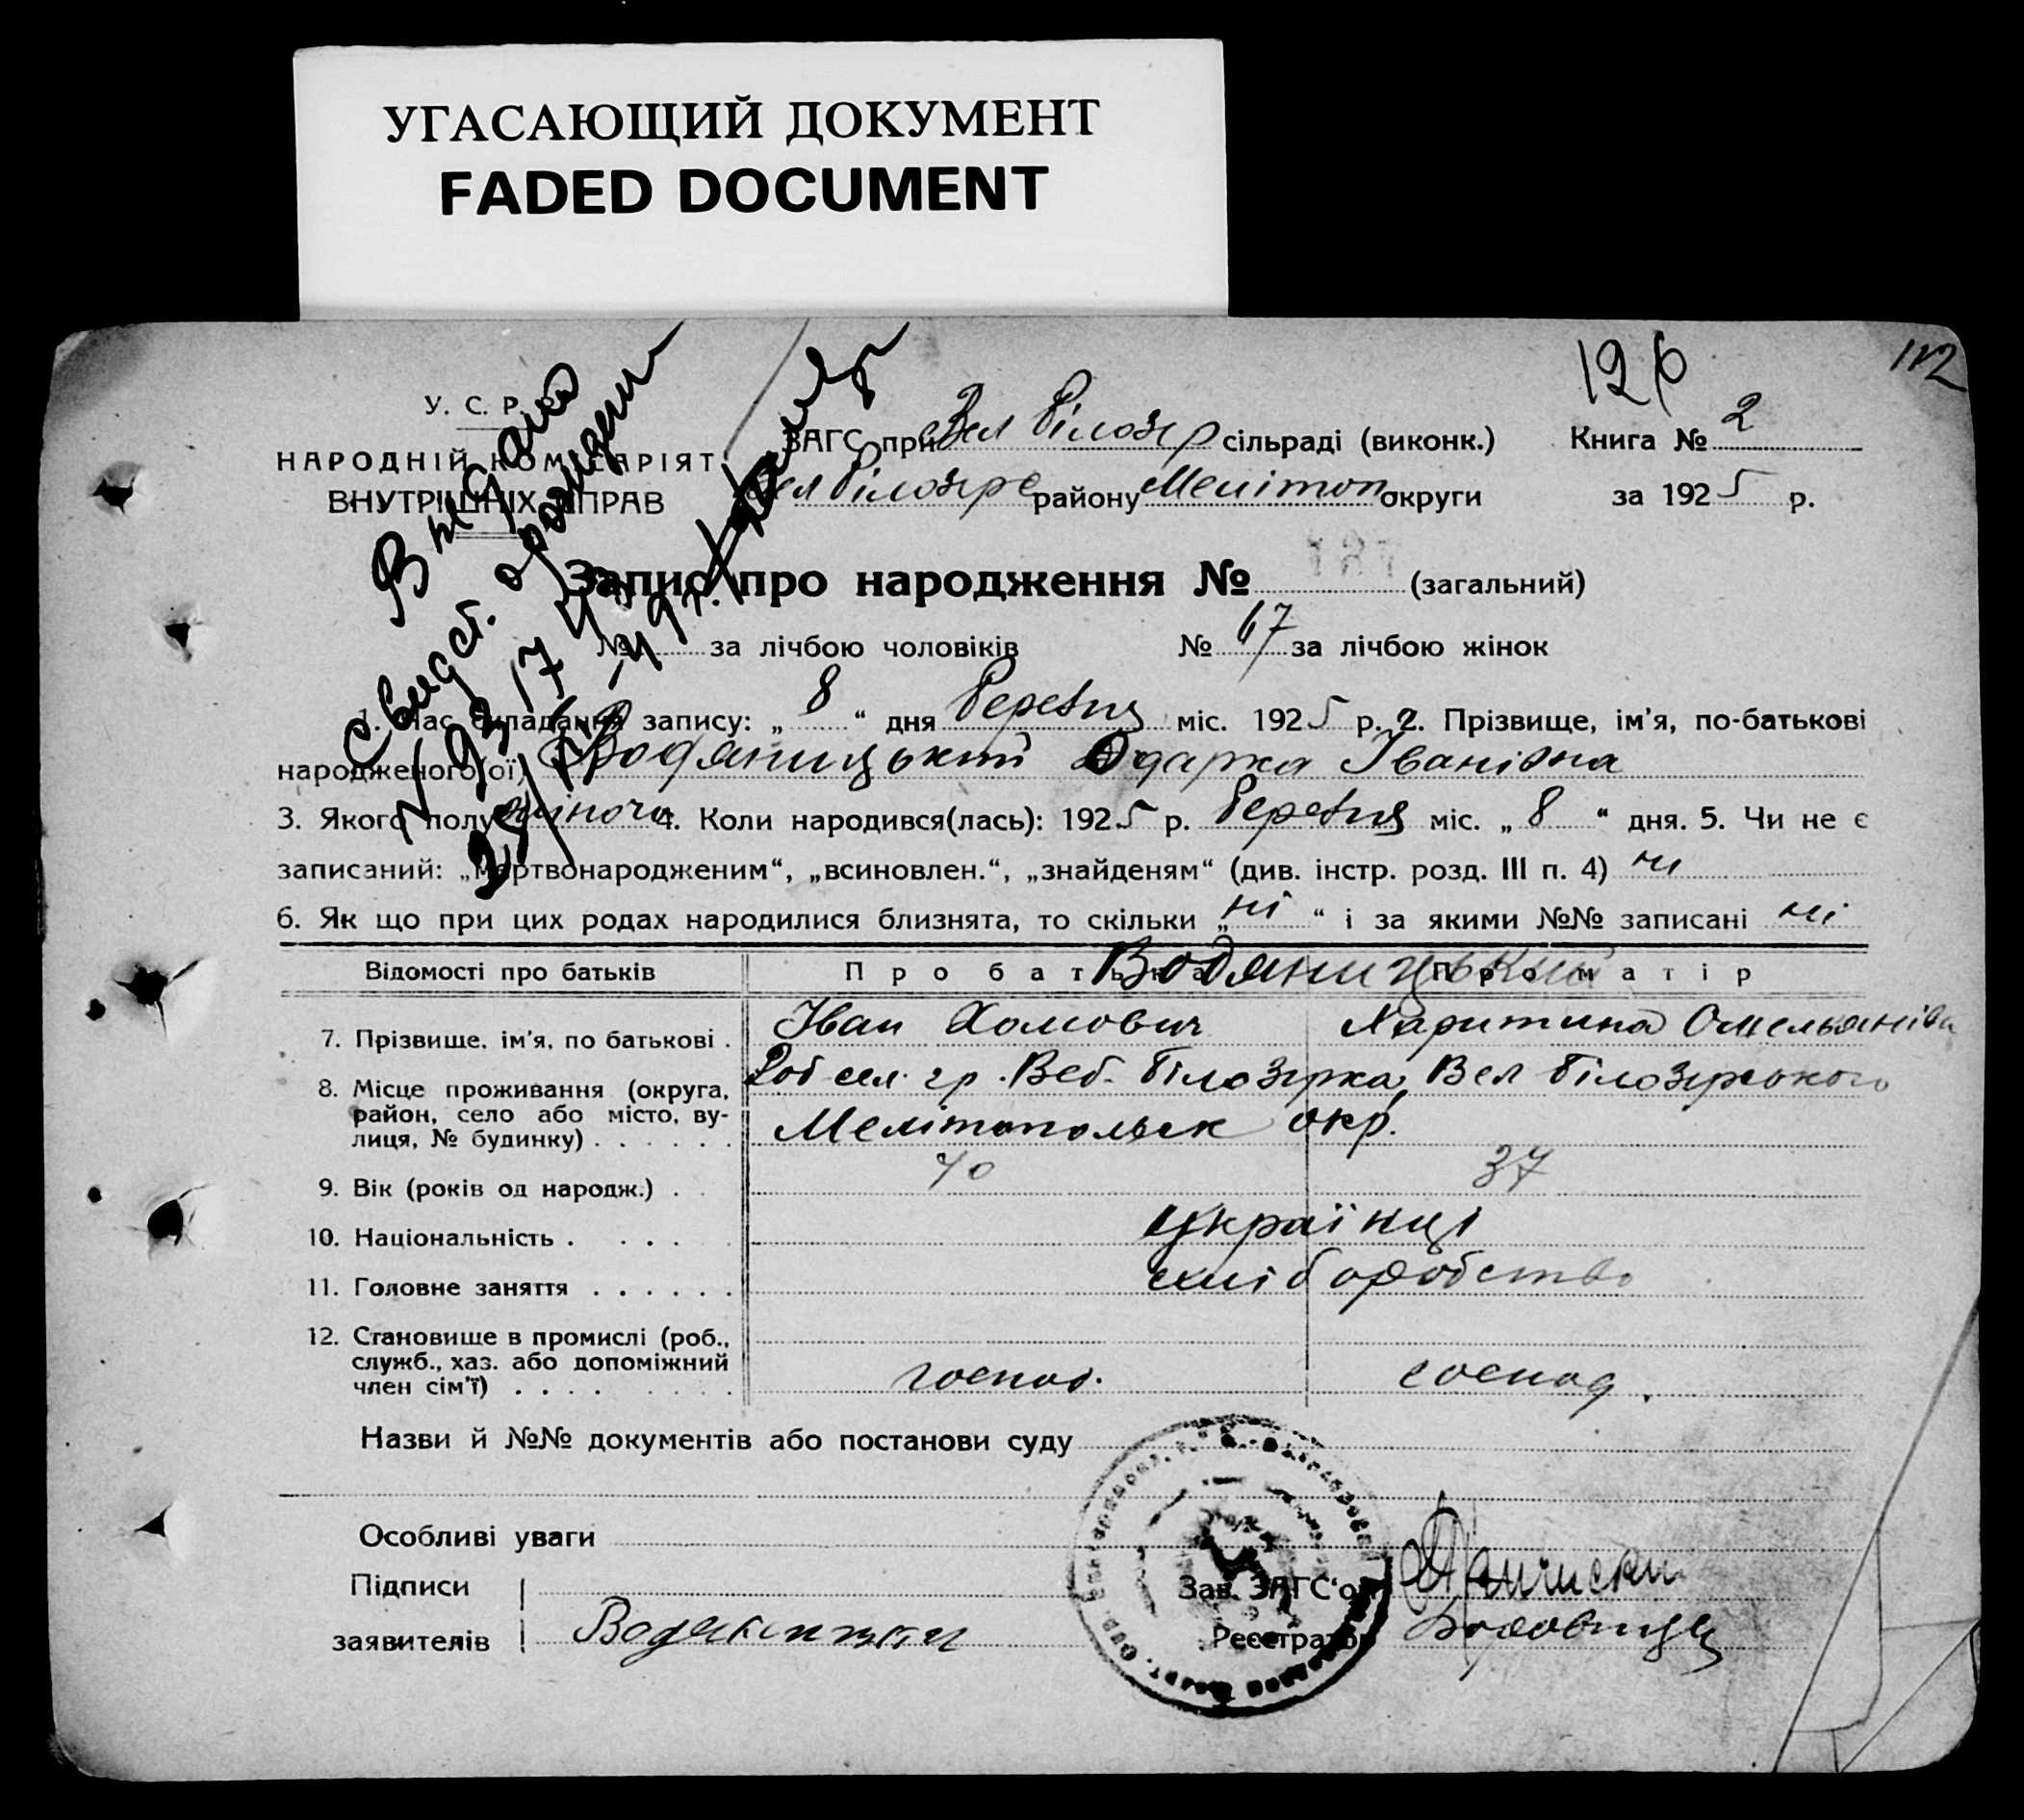 УГАСАЮЩИЙ ДОКУМЕНТ
FADED DOCUMENT
126
112
У. С. Р. Р.
НАРОДНІЙ КОМІСАРІЯТ
ВНУТРІШНІХ СПРАВ
ЗАГС при Вел Білозер сільраді (виконк.) Книга № 2
Вел Білозерс району Мелітоп округи за 1925 р.
Видано
свидст. о рожден
Запис про народження № 181 (загальний)
№ за лічбою чоловіків № 67 за лічбою жінок
1. Час складання запису: „ 8 “ дня березня міс. 1925 р. 2. Прізвище, ім’я, по-батькові
народженого(ої) Водяницький Одарка Іванівна
3. Якого полу жіноч. 4. Коли народився(лась): 1925 р. березня міс. „ 8 “ дня. 5. Чи не є
записаний: „мертвонародженим“, „всиновлен.“, „знайденям“ (див. інстр. розд. III п. 4) ні
6. Як що при цих родах народилися близнята, то скільки „ ні “ і за якими №№ записані ні
Відомості про батьків Про батька Про матір
Водяницький
7. Прізвище, ім’я, по батькові . Іван Хомович Харитина Омельянівн
8. Місце проживання (округа,
район, село або місто, ву-
лиця, № будинку) . . . . . .
сел. гр. Вел. Білозірка, Вел Білозірського
Мелітопольск окр.
9. Вік (років од народж.) . 40 37
10. Національність . . . . українці
11. Головне заняття . . . . . . хліборобство
12. Становище в промислі (роб.,
служб., хаз. або допоміжний
член сім’ї) . . . . господ. господ.
Назви й №№ документів або постанови суду
Особливі уваги
Підписи
заявителів
Зав. ЗАГС‘ом
Реєстратор